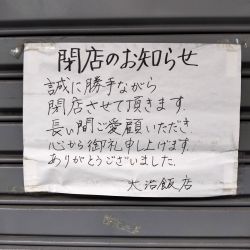 閉店のお知らせ
誠に勝手ながら
閉店させて頂きます.
長い間ご愛顧いただき.
心から御礼申し上げます.
ありがとうございました.
大浴飯店